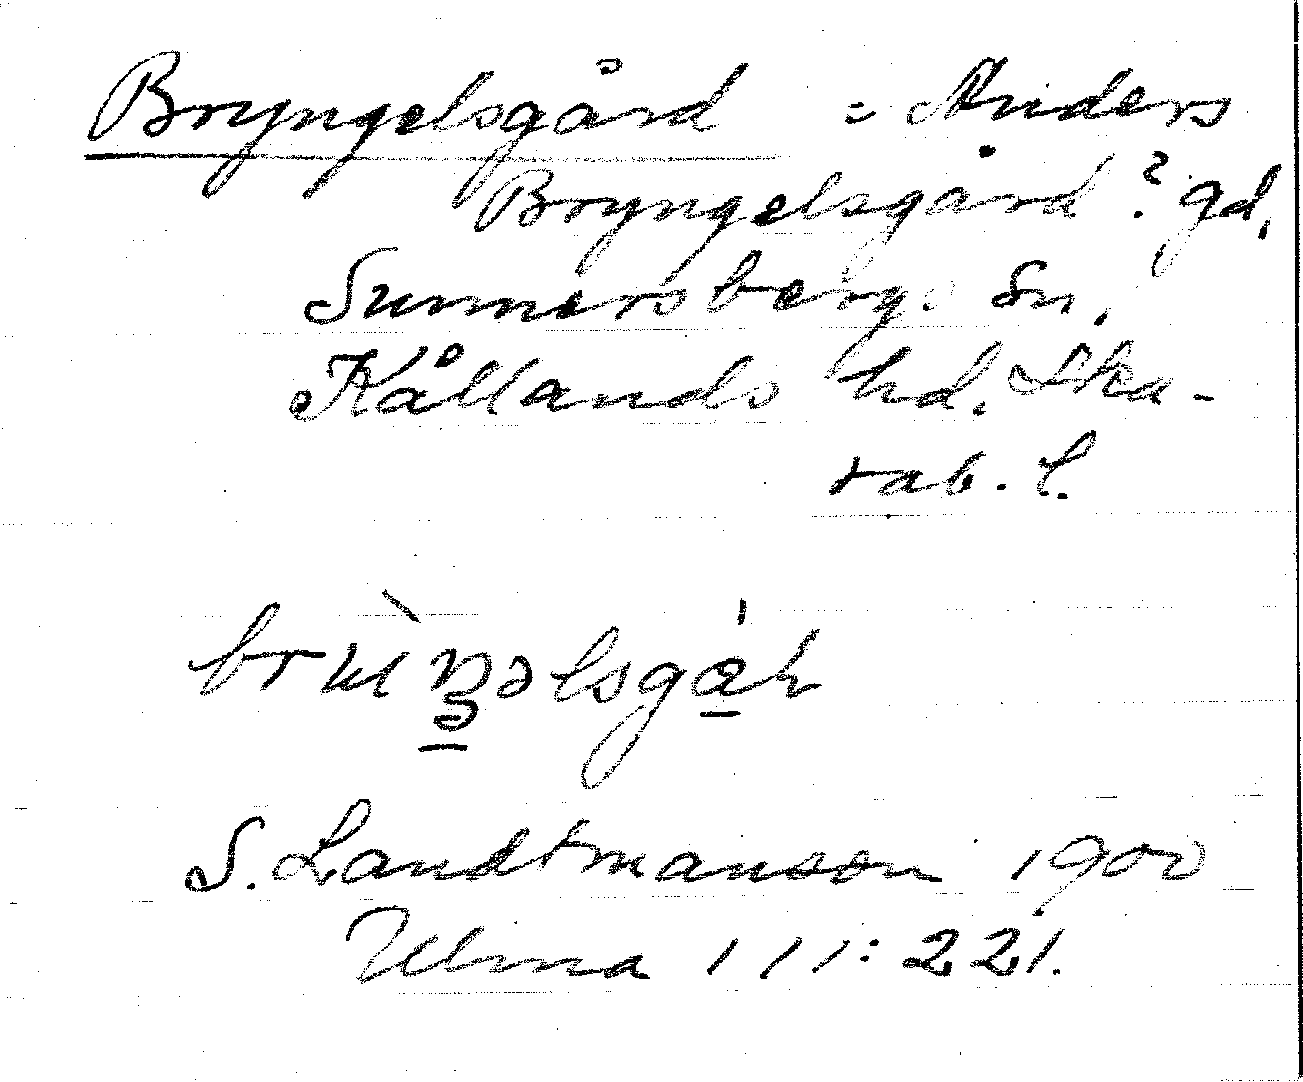 Bryngelsgård = Anders
Bryngelsgård? gd,
Sunnersbergs sn,
Kållands hd. Ska-
rab. l.
S. Landtmanson 1900
Ulma 111:221.